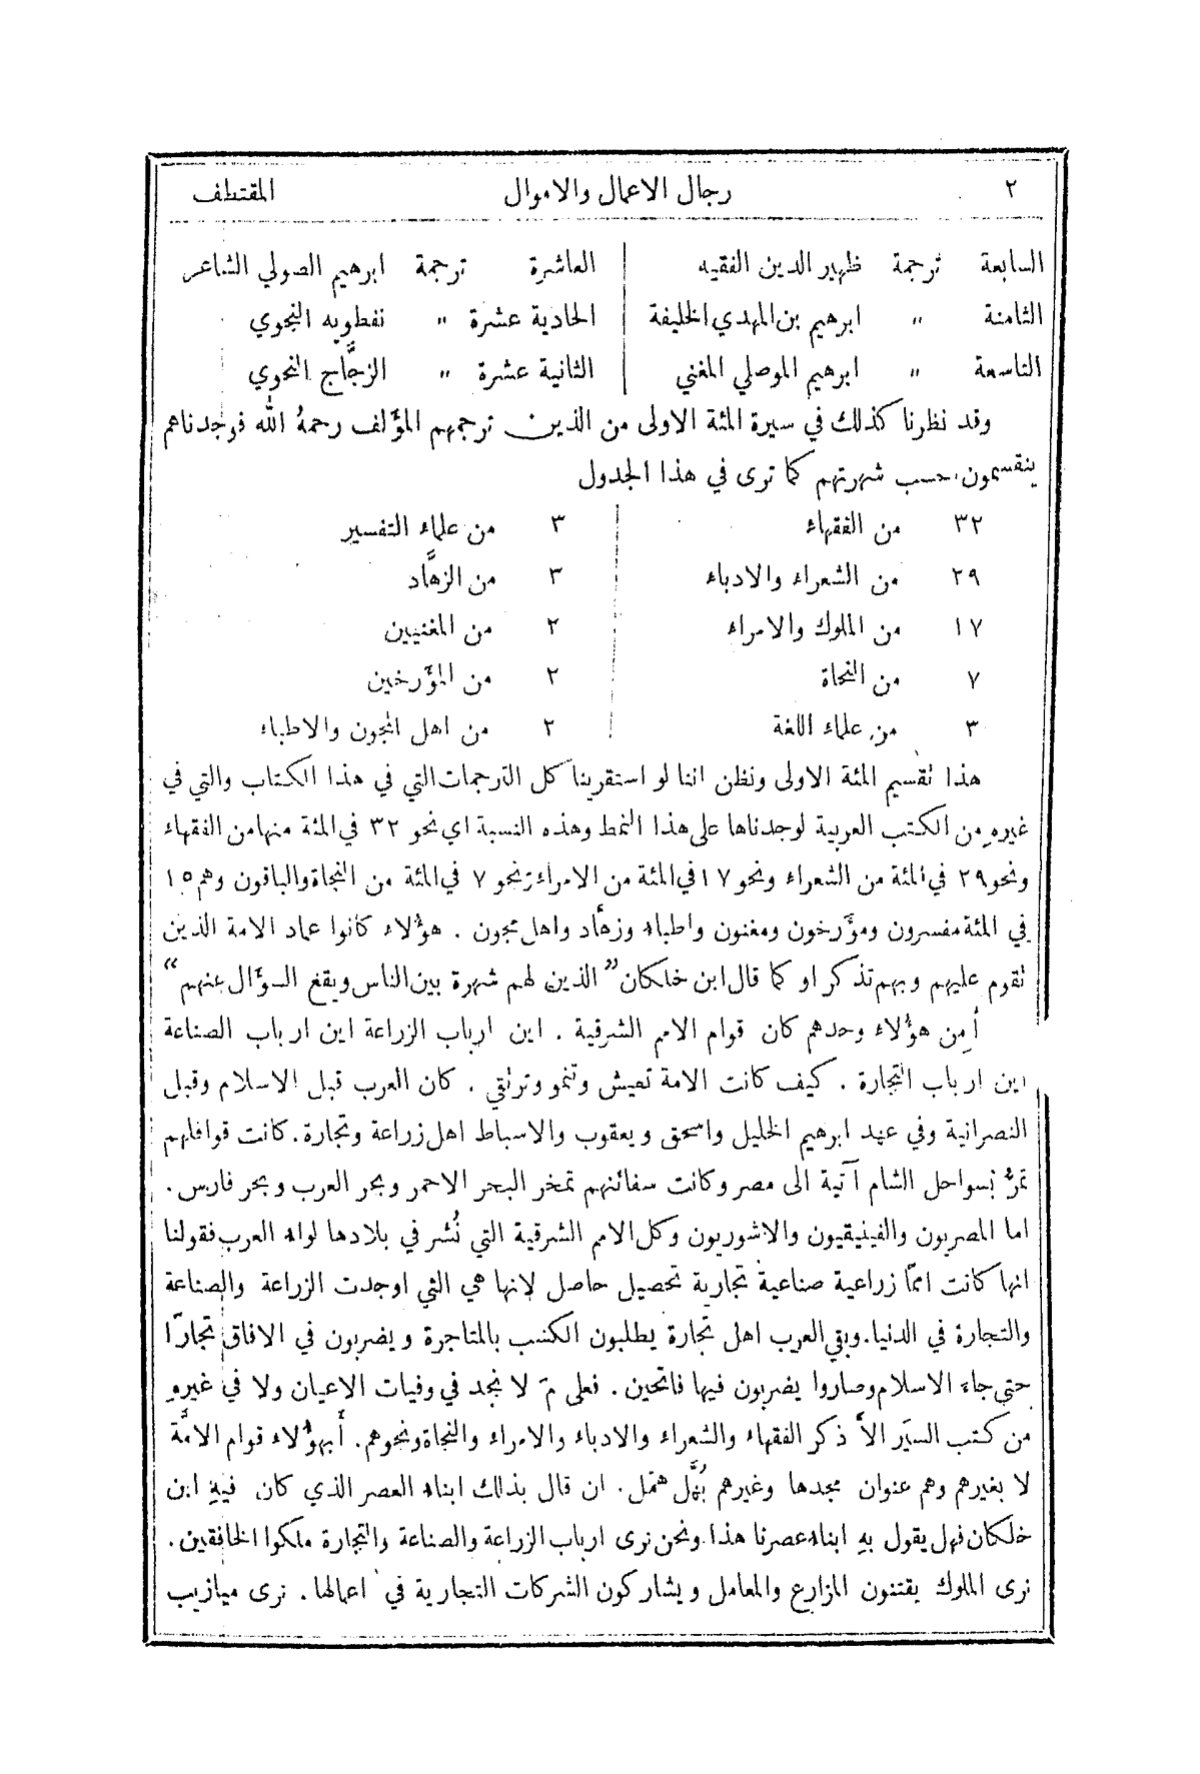 ٢ رجال الاعمال والاموال المقتطف
السابعة ترجمة ظهير الدين الفقيه العاشرة ترجمة ابرهيم الصولي الشاعر
الثامنة " ابرهيم بن المهدي الخليفة الحادية عشرة " نفطويه النحوي
التاسعة " ابرهيم الموصلي المغني الثانية عشرة " الزجَّاج النحوي
وقد نظرنا كذلك في سيرة المئة الاولى من الذين ترجمهم المؤَلف رحمهُ الله فوجدناهم
ينقسمون حسب شهرتهم كما ترى في هذا الجدول
٣٢ من الفقهاء ٣ من علماء التفسير
٢٩ من الشعراء والادباء ٣ من الزهَّاد
١٧ من الملوك والامراء ٢ من المغنيين
٧ من النحاة ٢ من المؤَرخين
٣ من علماء اللغة ٢ من اهل المجون والاطباء
هذا تقسيم المئة الاولى ونظن اننا لو استقرينا كل الترجمات التي في هذا الكتاب والتي في
غيرهِ من الكتب العربية لوجدناها على هذا النمط وهذه النسبة اي نحو ٣٢ في المئة منها من الفقهاء
ونحو ٢٩ في المئة من الشعراء ونحو ١٧ في المئة من الامراء ونحو ٧ في المئة من النحاة والباقون وهم ١٥
في المئة مفسرون ومؤَرخون ومغنون واطباء وزهَّاد واهل مجون . هؤُلاء كانوا عماد الامة الذين
تقوم عليهم وبهم تذكر او كما قال ابن خلكان "الذين لهم شهرة بين الناس ويقع السؤَال عنهم"
أَمِن هؤُلاء وحدهم كان قوام الامم الشرقية . اين ارباب الزراعة اين ارباب الصناعة
اين ارباب التجارة . كيف كانت الامة تعيش وتنمو وترتقي . كان العرب قبل الاسلام وقبل
النصرانية وفي عهد ابرهيم الخليل واسحق ويعقوب والاسباط اهل زراعة وتجارة . كانت قوافلهم
تمرُّ بسواحل الشام آتية الى مصر وكانت سفائنهم تمخر البحر الاحمر وبحر العرب وبحر فارس .
اما المصريون والفينيقيون والاشوريون وكل الامم الشرقية التي نُشر في بلادها لواء العرب فقولنا
انها كانت امماً زراعية صناعية تجارية تحصيل حاصل لانها هي التي اوجدت الزراعة والصناعة
والتجارة في الدنيا . وبقي العرب اهل تجارة يطلبون الكسب بالمتاجرة ويضربون في الافاق تجارًا
حتى جاء الاسلام وصاروا يضربون فيها فاتحين . فعلى مَ لا نجد في وفيات الاعيان ولا في غيرهِ
من كتب السيَر الاَّ ذكر الفقهاء والشعراء والادباء والامراء والنحاة ونحوهم . أَبهؤُلاء قوام الامَّة
لا بغيرهم وهم عنوان مجدها وغيرهم بُهَّل همَّل . ان قال بذلك ابناء العصر الذي كان فيهِ ابن
خلكان فهل يقول بهِ ابناء عصرنا هذا ونحن نرى ارباب الزراعة والصناعة والتجارة ملكوا الخافقين .
نرى الملوك يقتنون المزارع والمعامل ويشاركون الشركات التجارية في اعمالها . نرى ميازيب